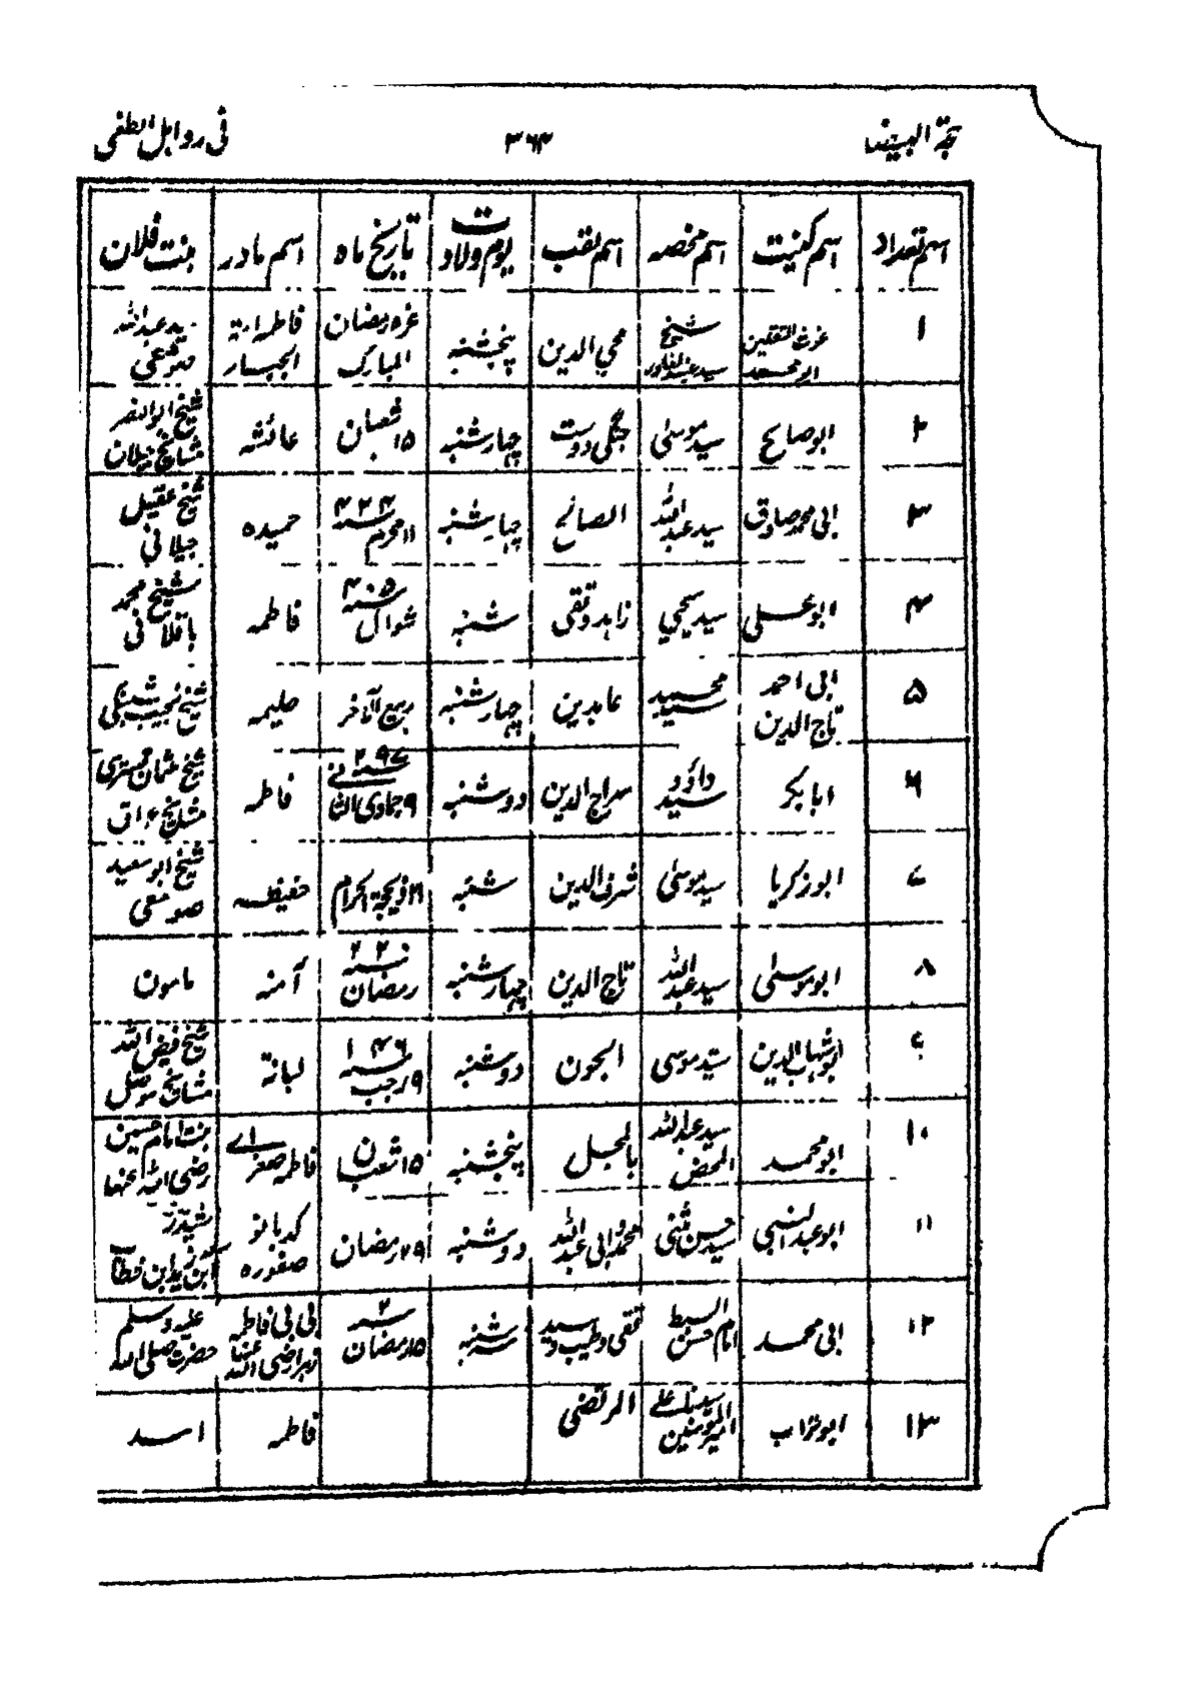 حجۃ البیضا ۳۶۴ فی روابل الطفی
اسم تعداد اسم کنیت اسم مخصہ اسم لقب یوم ولادت تاریخ ماہ اسم مادر بنت فلاں
۱ غوث الثقلین ابو محمد شیخ سید عبدالقادر محی الدین پنچشنبہ غرہ رمضان المبارک فاطمہ امۃ الجبار سید عبداللہ صومعی
۲ ابو صالح سید موسیٰ جنگی دوست چہار شنبہ ۱۵ شعبان عائشہ شیخ ابو النصر مشائخ جیلان
۳ ابی محمد صادق سید عبداللہ الصالح چہار شنبہ ۴۲۴ سنہ ۱۱ محرم حمیدہ شیخ عقیل جیلانی
۴ ابو علی سید یحیی زاہد و تقی شنبہ ۴۰۵ سنہ شوال فاطمہ شیخ محمد باقلانی
۵ ابی احمد تاج الدین سید محمد عابدین چہار شنبہ ربیع الآخر حلیمہ شیخ نجیب
۶ ابابکر سید داؤد سراج الدین دوشنبہ ۲۹۷ سنہ ۹ جمادی الثانی فاطمہ شیخ عثمان مشائخ عراق
۷ ابو زکریا سید موسیٰ شرف الدین شنبہ ۲۱ ذیحجۃ الحرام حفیظہ شیخ ابو سعید
۸ ابو موسیٰ سید عبداللہ تاج الدین چہار شنبہ ۲۲۰ سنہ رمضان آمنہ مامون
۹ ابو شہاب الدین سید موسی الجون دوشنبہ ۱۴۶ سنہ ۹ رجب لبانۃ شیخ فیض اللہ مشائخ موصل
۱۰ ابو محمد سید عبداللہ المحض بالمجل پنجشنبہ ۱۵ شعبان فاطمہ صغراے بنت امام حسین رضی اللہ عنہا
۱۱ ابو عبدالنبی سید حسن مثنی محمد و ابی عبداللہ دوشنبہ ۲۹ رمضان کدبانو صفورہ
۱۲ ابی محمد السبط امام حسن تقی و طیب و سید سہ شنبہ ۲ سنہ ۱۵ رمضان بی بی فاطمہ زہرا رضی اللہ عنہا حضرت صلی اللہ علیہ وسلم
۱۳ ابو تراب سیدنا علے امیر المومنین المرتضی فاطمہ اسد